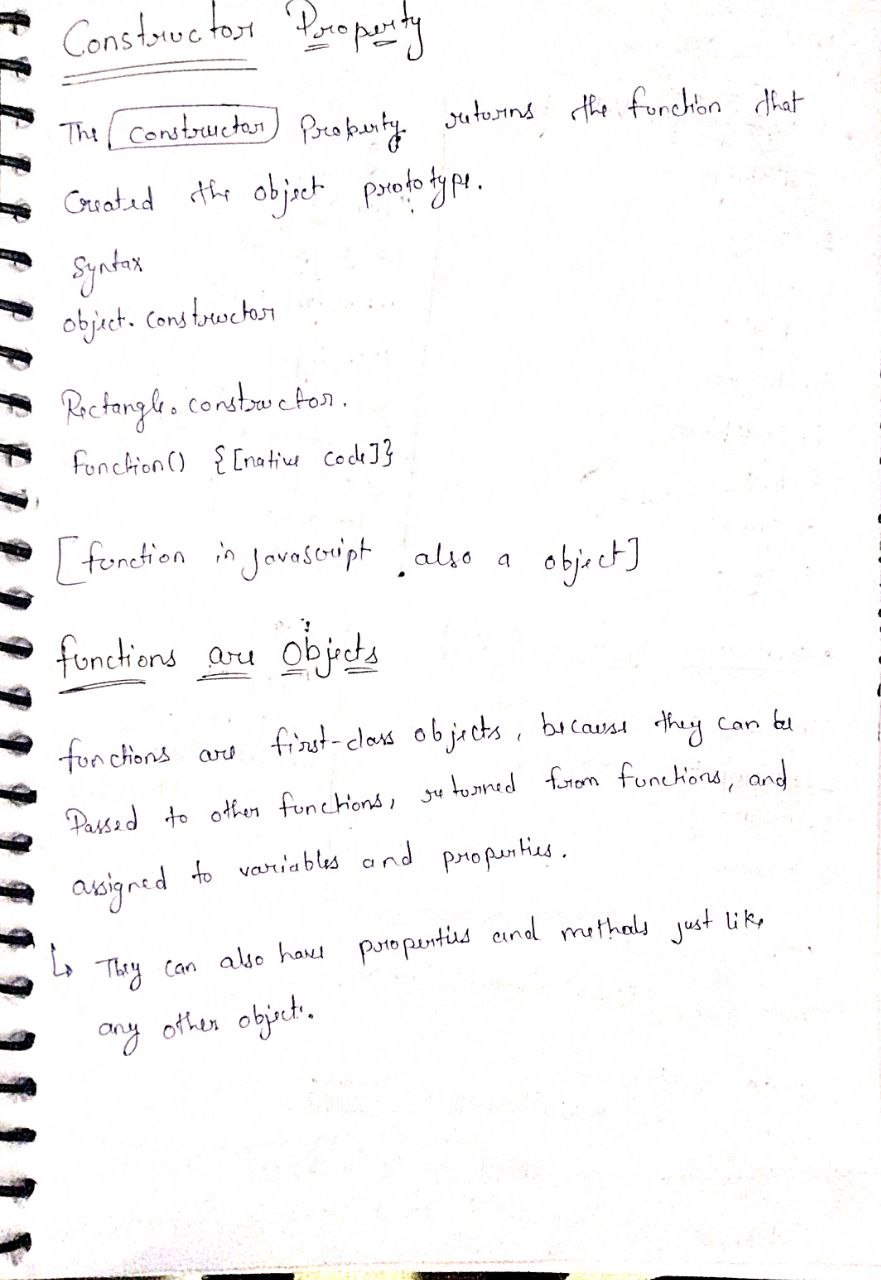 Constructor Property
The constructor Property returns the function that
Created the object prototype.
Syntax
object. constructor
Rectangle. constructor.
function() {[native code]}
[function in javascript also a object]
functions are Objects
functions are first-class objects, because they can be
Passed to other functions, returned from functions, and
assigned to variables and properties.
↳ They can also have properties and methods just like
any other object.